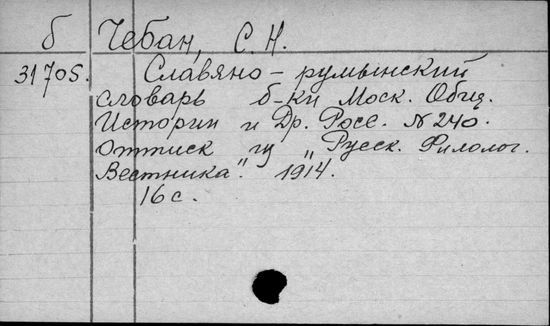 б Чебан, С. Н.
31705. Славяно-румынский
словарь б-ки Моск. Общ.
Истории и Др. Росс. № 240.
Оттиск из „Русск. Филолог.
Вестника". 1914.
16 с.